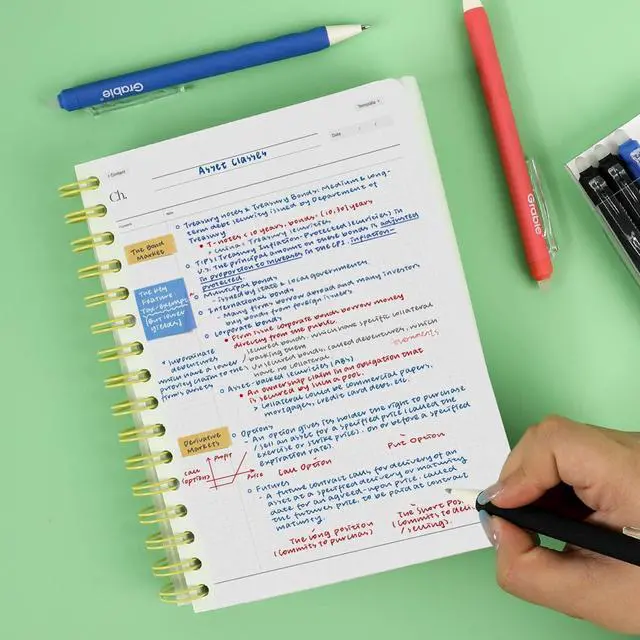 Grable
Grable
< Content
Template
Ch.
Asset Classes
Date / /
Note
The Bond
Market
The key
Feature:
Tax-exempt
(but lower
yields)
Treasury notes & Treasury Bonds: Medium & long-
term debt security issued by Department of
Treasury
T-notes < 10 years, bonds: (10, 30] years
Treasury securities
TIPS: Treasury Inflation-Protected Securities) in
U.S. The principal amount on these bonds is adjusted
in proportion to increases in the CPI. inflation-
protected.
Municipal bonds
- issued by state & local governments.
International bonds
- Many firms borrow abroad and many investors
buy bonds from foreign issuers
Corporate bonds
Firm issue corporate bonds borrow money
directly from the public.
secured bonds, which have specific collateral
backing them
Unsecured bonds, called debentures, which
have no collateral.
Subordinate
debentures,
which have a lower
priority claim to the
firm's assets
Asset-backed securities (ABS)
An ownership claim in an obligation that
is secured by such a pool.
> Collateral could be commercial papers,
mortgages, credit card debt, etc.
Derivative
Markets
Options
- An option gives its holder the right to purchase
/sell an asset for a specified price (called the
exercise or strike price). on or before a specified
expiration rate)
profit
Call
(option)
Price
Call Option
Put Option
Futures
- A future contract calls for delivery of an
asset at a specified delivery or maturity
date for an agreed-upon price, called
the futures price, to be paid at contract
maturity.
The long position
(commits to purchas)
The short pos
(commits to deli
/selling).